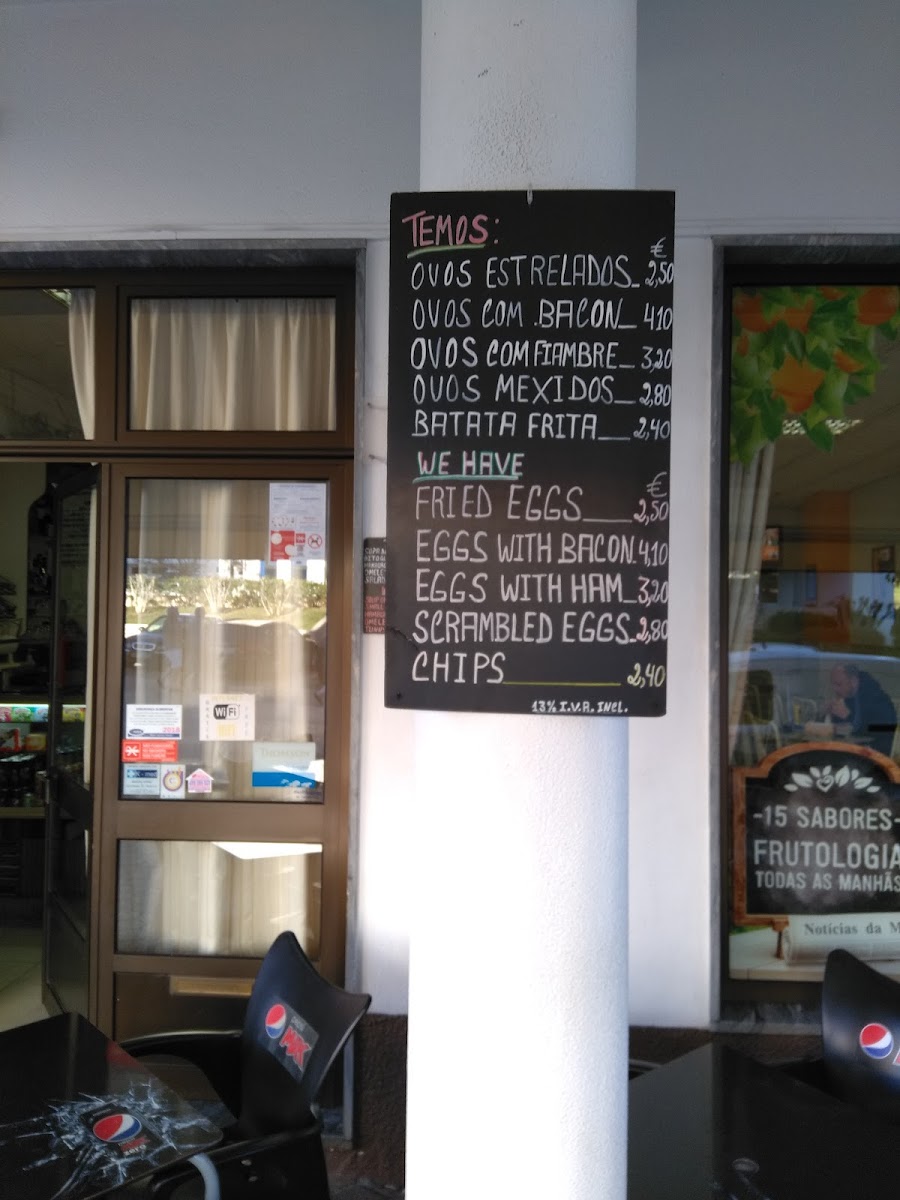 TEMOS:
€
OVOS ESTRELADOS_ 2,50
OVOS COM .BACON_ 4,10
OVOS COM FIAMBRE_ 3,20
OVOS MEXIDOS_ 2,80
BATATA FRITA__ 2,40
WE HAVE
€
FRIED EGGS___ 2,50
EGGS WITH BACON. 4,10
EGGS WITH HAM_ 3,20
SCRAMBLED EGGS_ 2,80
CHIPS______ 2,40
13% I.V.A. INCL.
WiFi
2018
THOMSON
-15 SABORES-
FRUTOLOGIA
TODAS AS MANHÃS
Notícias da M
MAX
zero